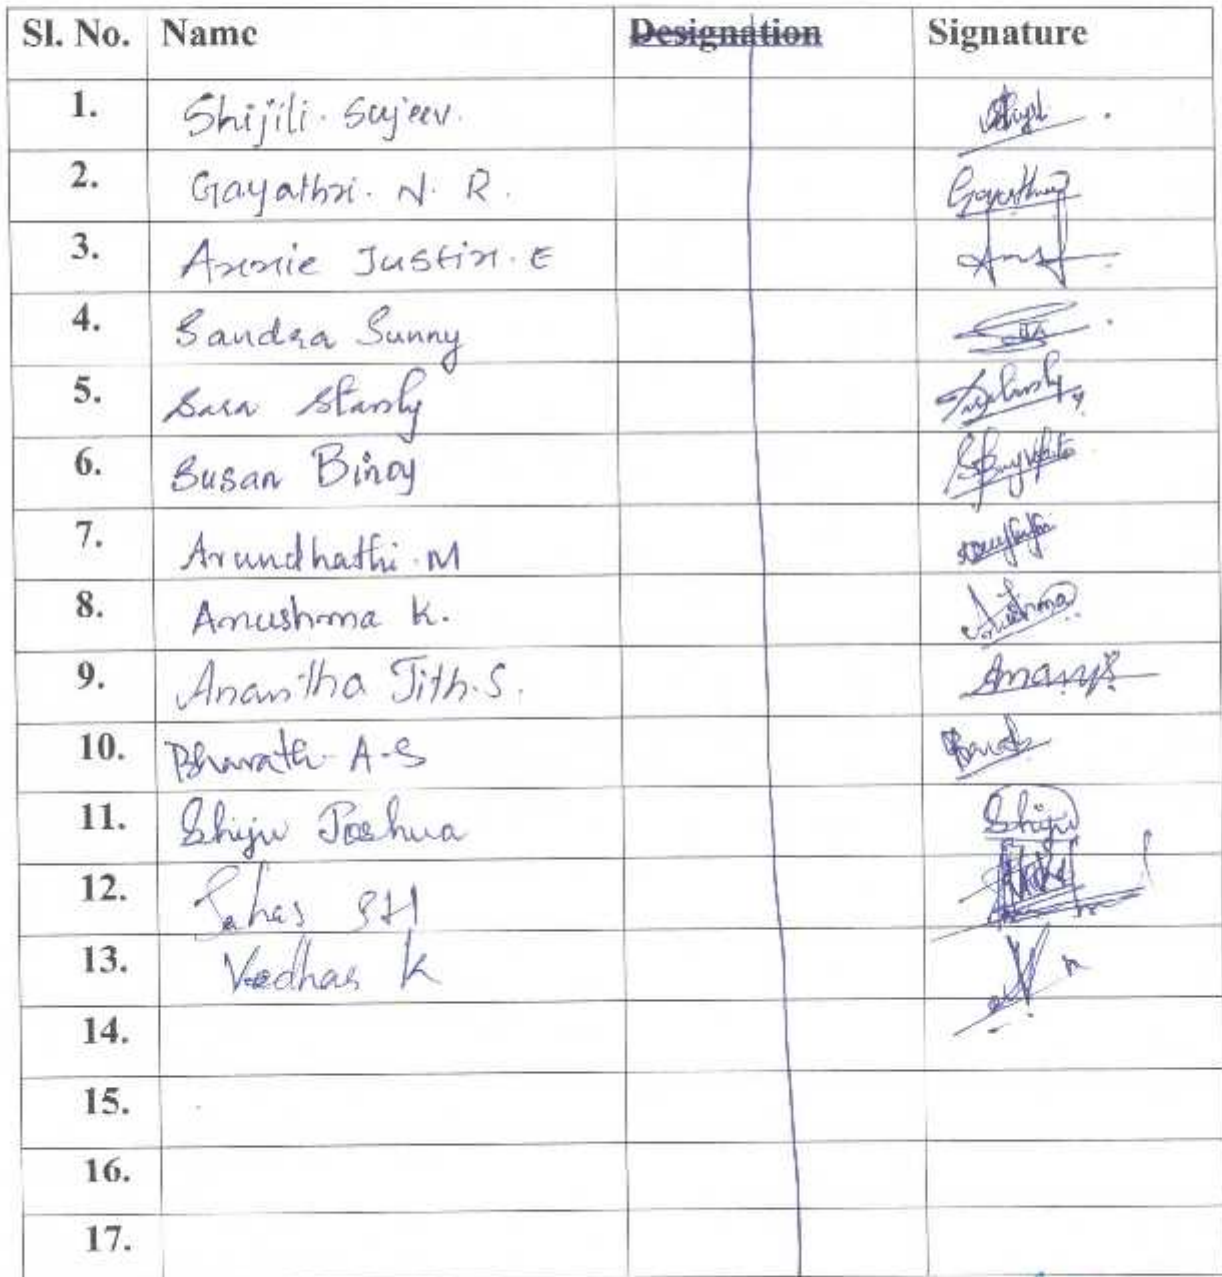 Sl. No. Name Designation Signature
1. Shijili. Sujeev.
2. Gayathri. N. R. Gayathri
3. Annie Justin. E
4. Sandra Sunny
5. Sara Stanly
6. Susan Binoy
7. Arundhathi. M
8. Anushma K. Anushma
9. Anantha Jith. S.
10. Bharath A-S
11. Shiju Joshua Shiju
12. Sahas
13. Vedhas K
14.
15.
16.
17.